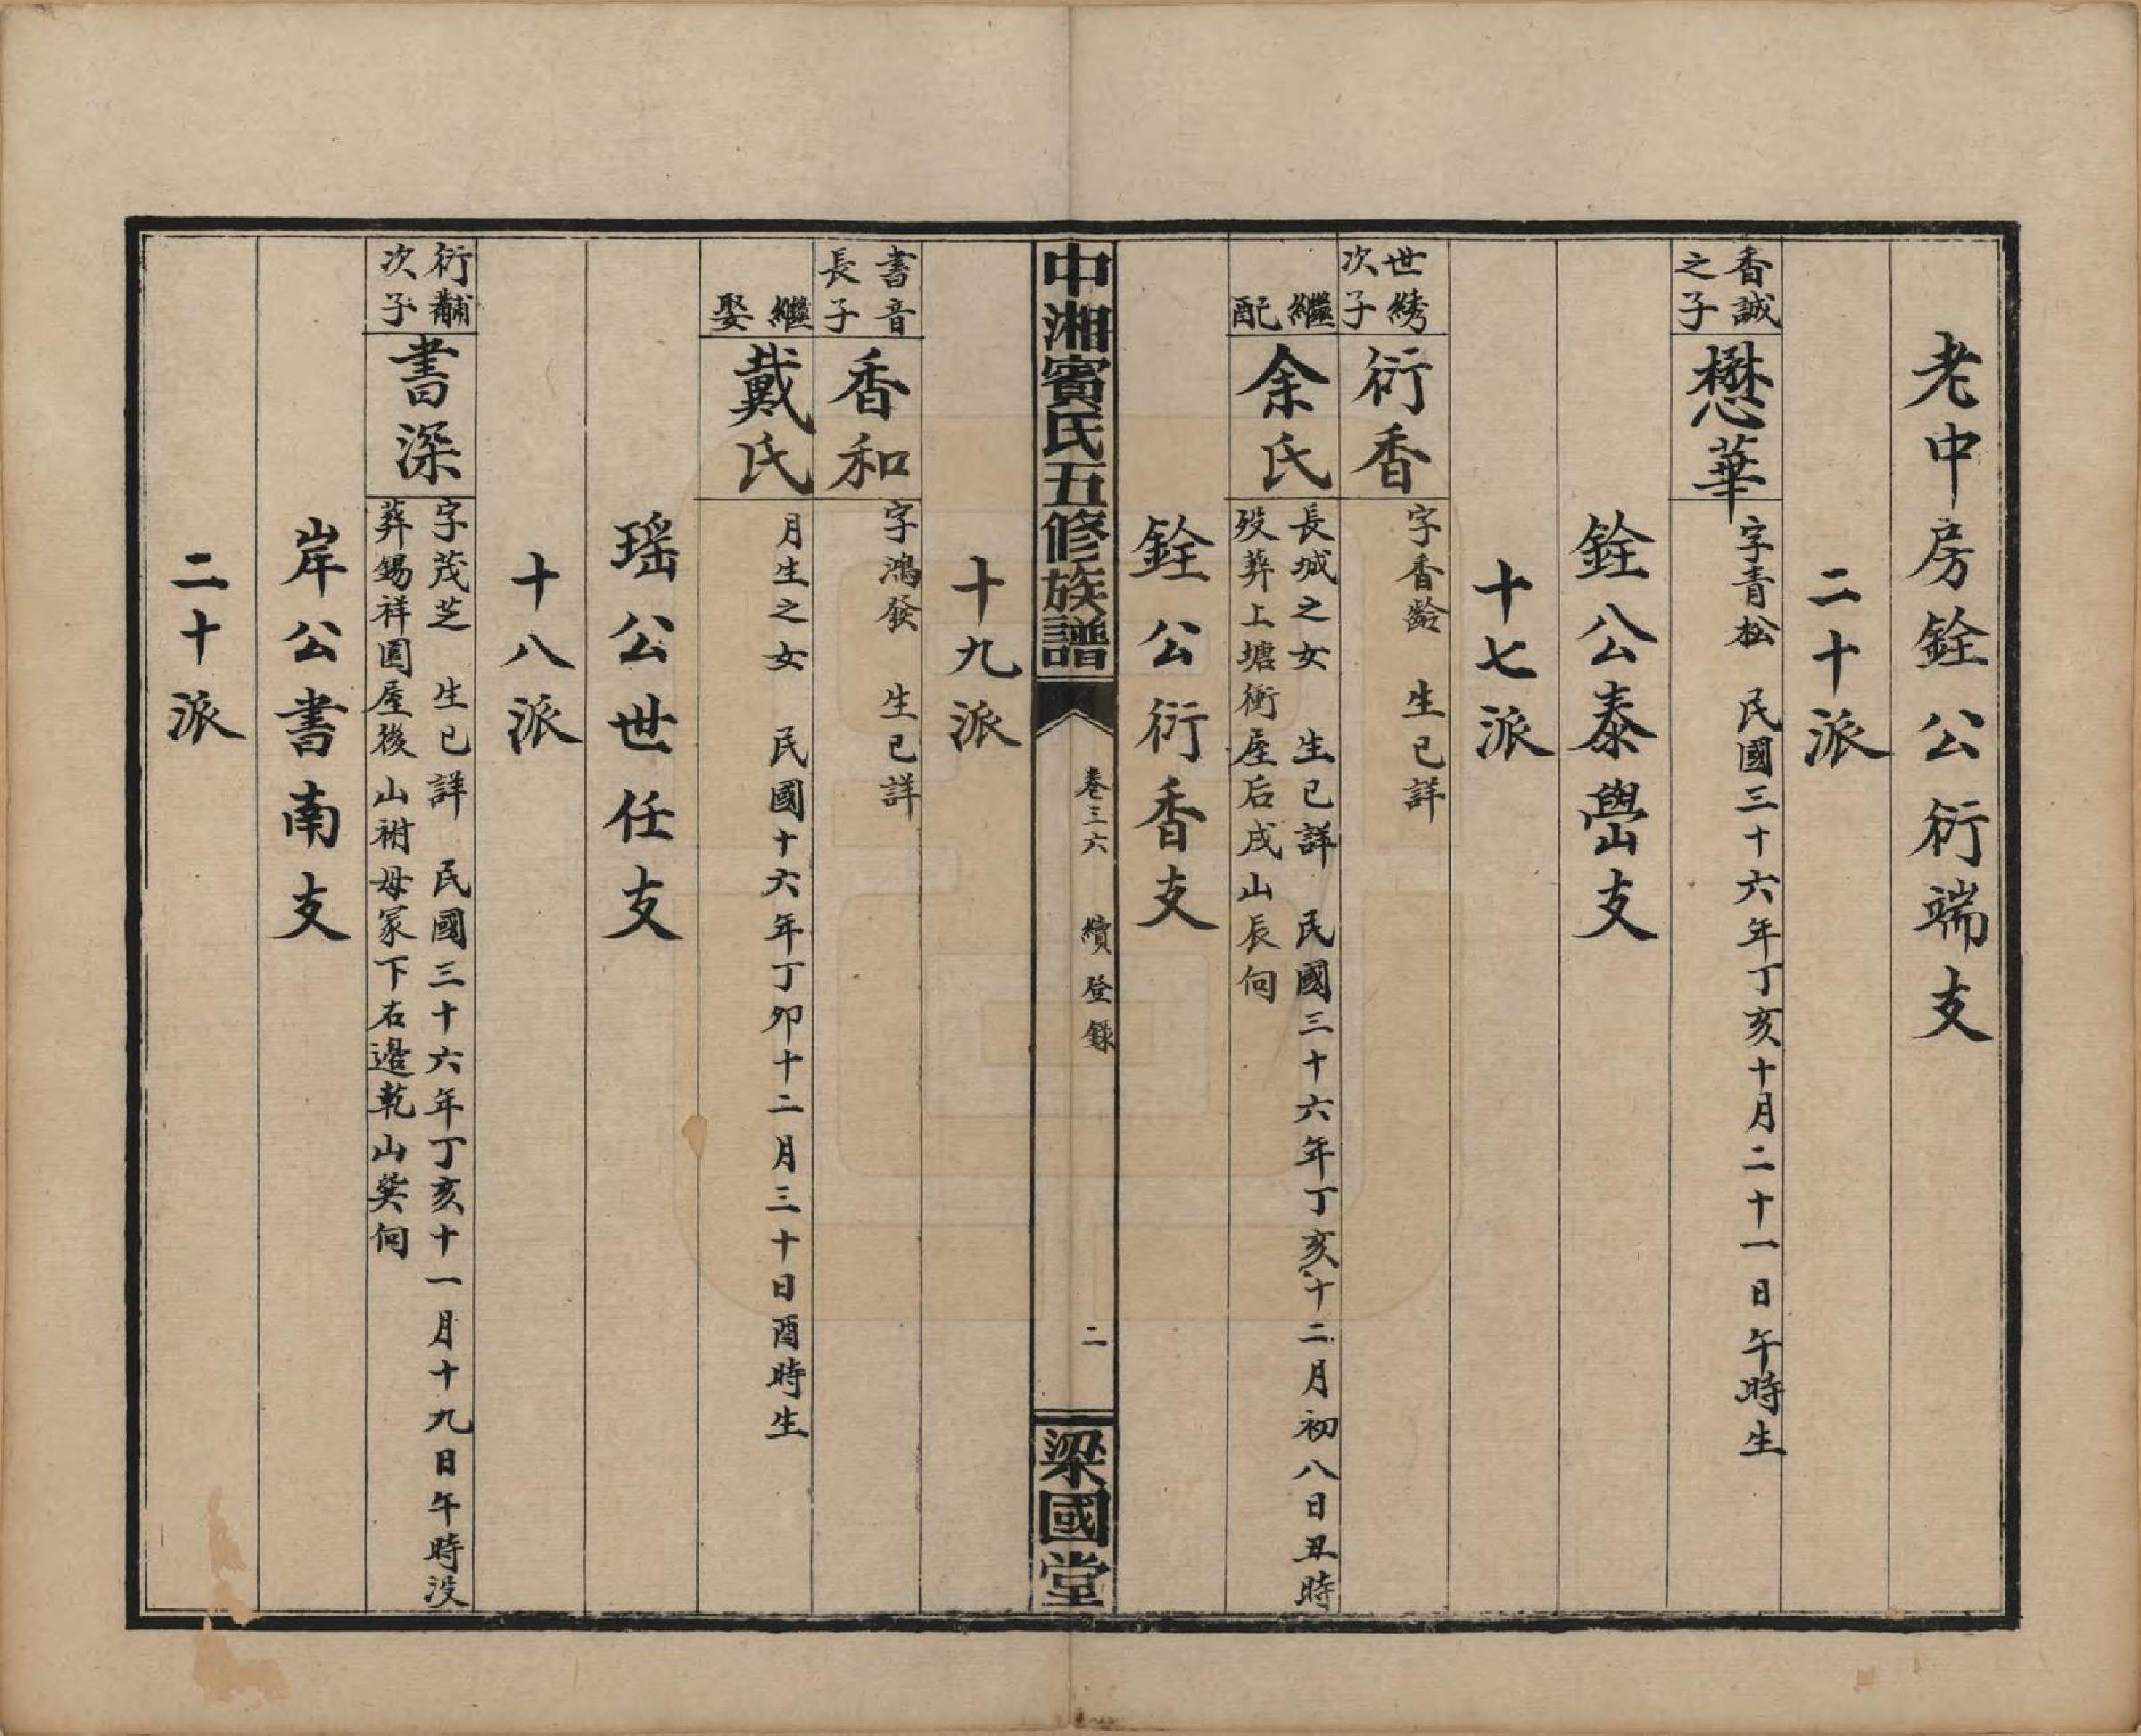 老中房銓公衍端支
二十派
香誠之子
懋華
字青松　民國三十六年丁亥十月二十一日午時生
銓公泰壆支
十七派
世綉次子
衍香
字香齡　生已詳
繼配
余氏
長城之女　生已詳　民國三十六年丁亥十二月初八日丑時
歿葬上塘衝屋后戌山辰向
銓公衍香支
中湘賓氏五修族譜
卷三六　續登錄
二
梁國堂
十九派
書音長子
香和
字鴻發　生已詳
繼娶
戴氏
月生之女　民國十六年丁卯十二月三十日酉時生
瑶公世任支
十八派
衍黼次子
書深
字茂芝　生已詳　民國三十六年丁亥十一月十九日午時没
葬錫祥園屋後山祔母冢下右邊乾山巽向
岸公書南支
二十派